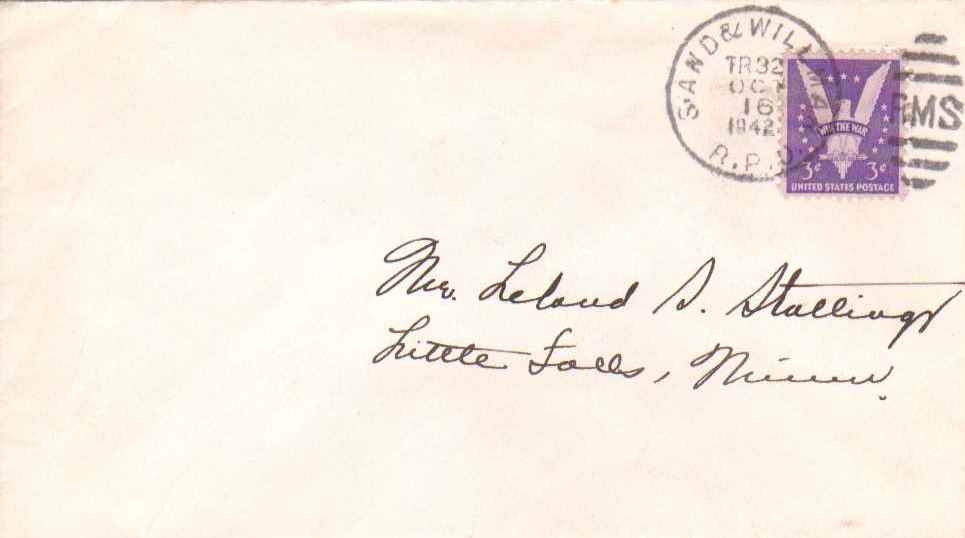 SAND & WILLMAR
TR32
OCT
16
1942
R.P.O.
RMS
WIN THE WAR
3¢ 3¢
UNITED STATES POSTAGE
Mr. Leland S. Stallings
Little Falls, Minn.